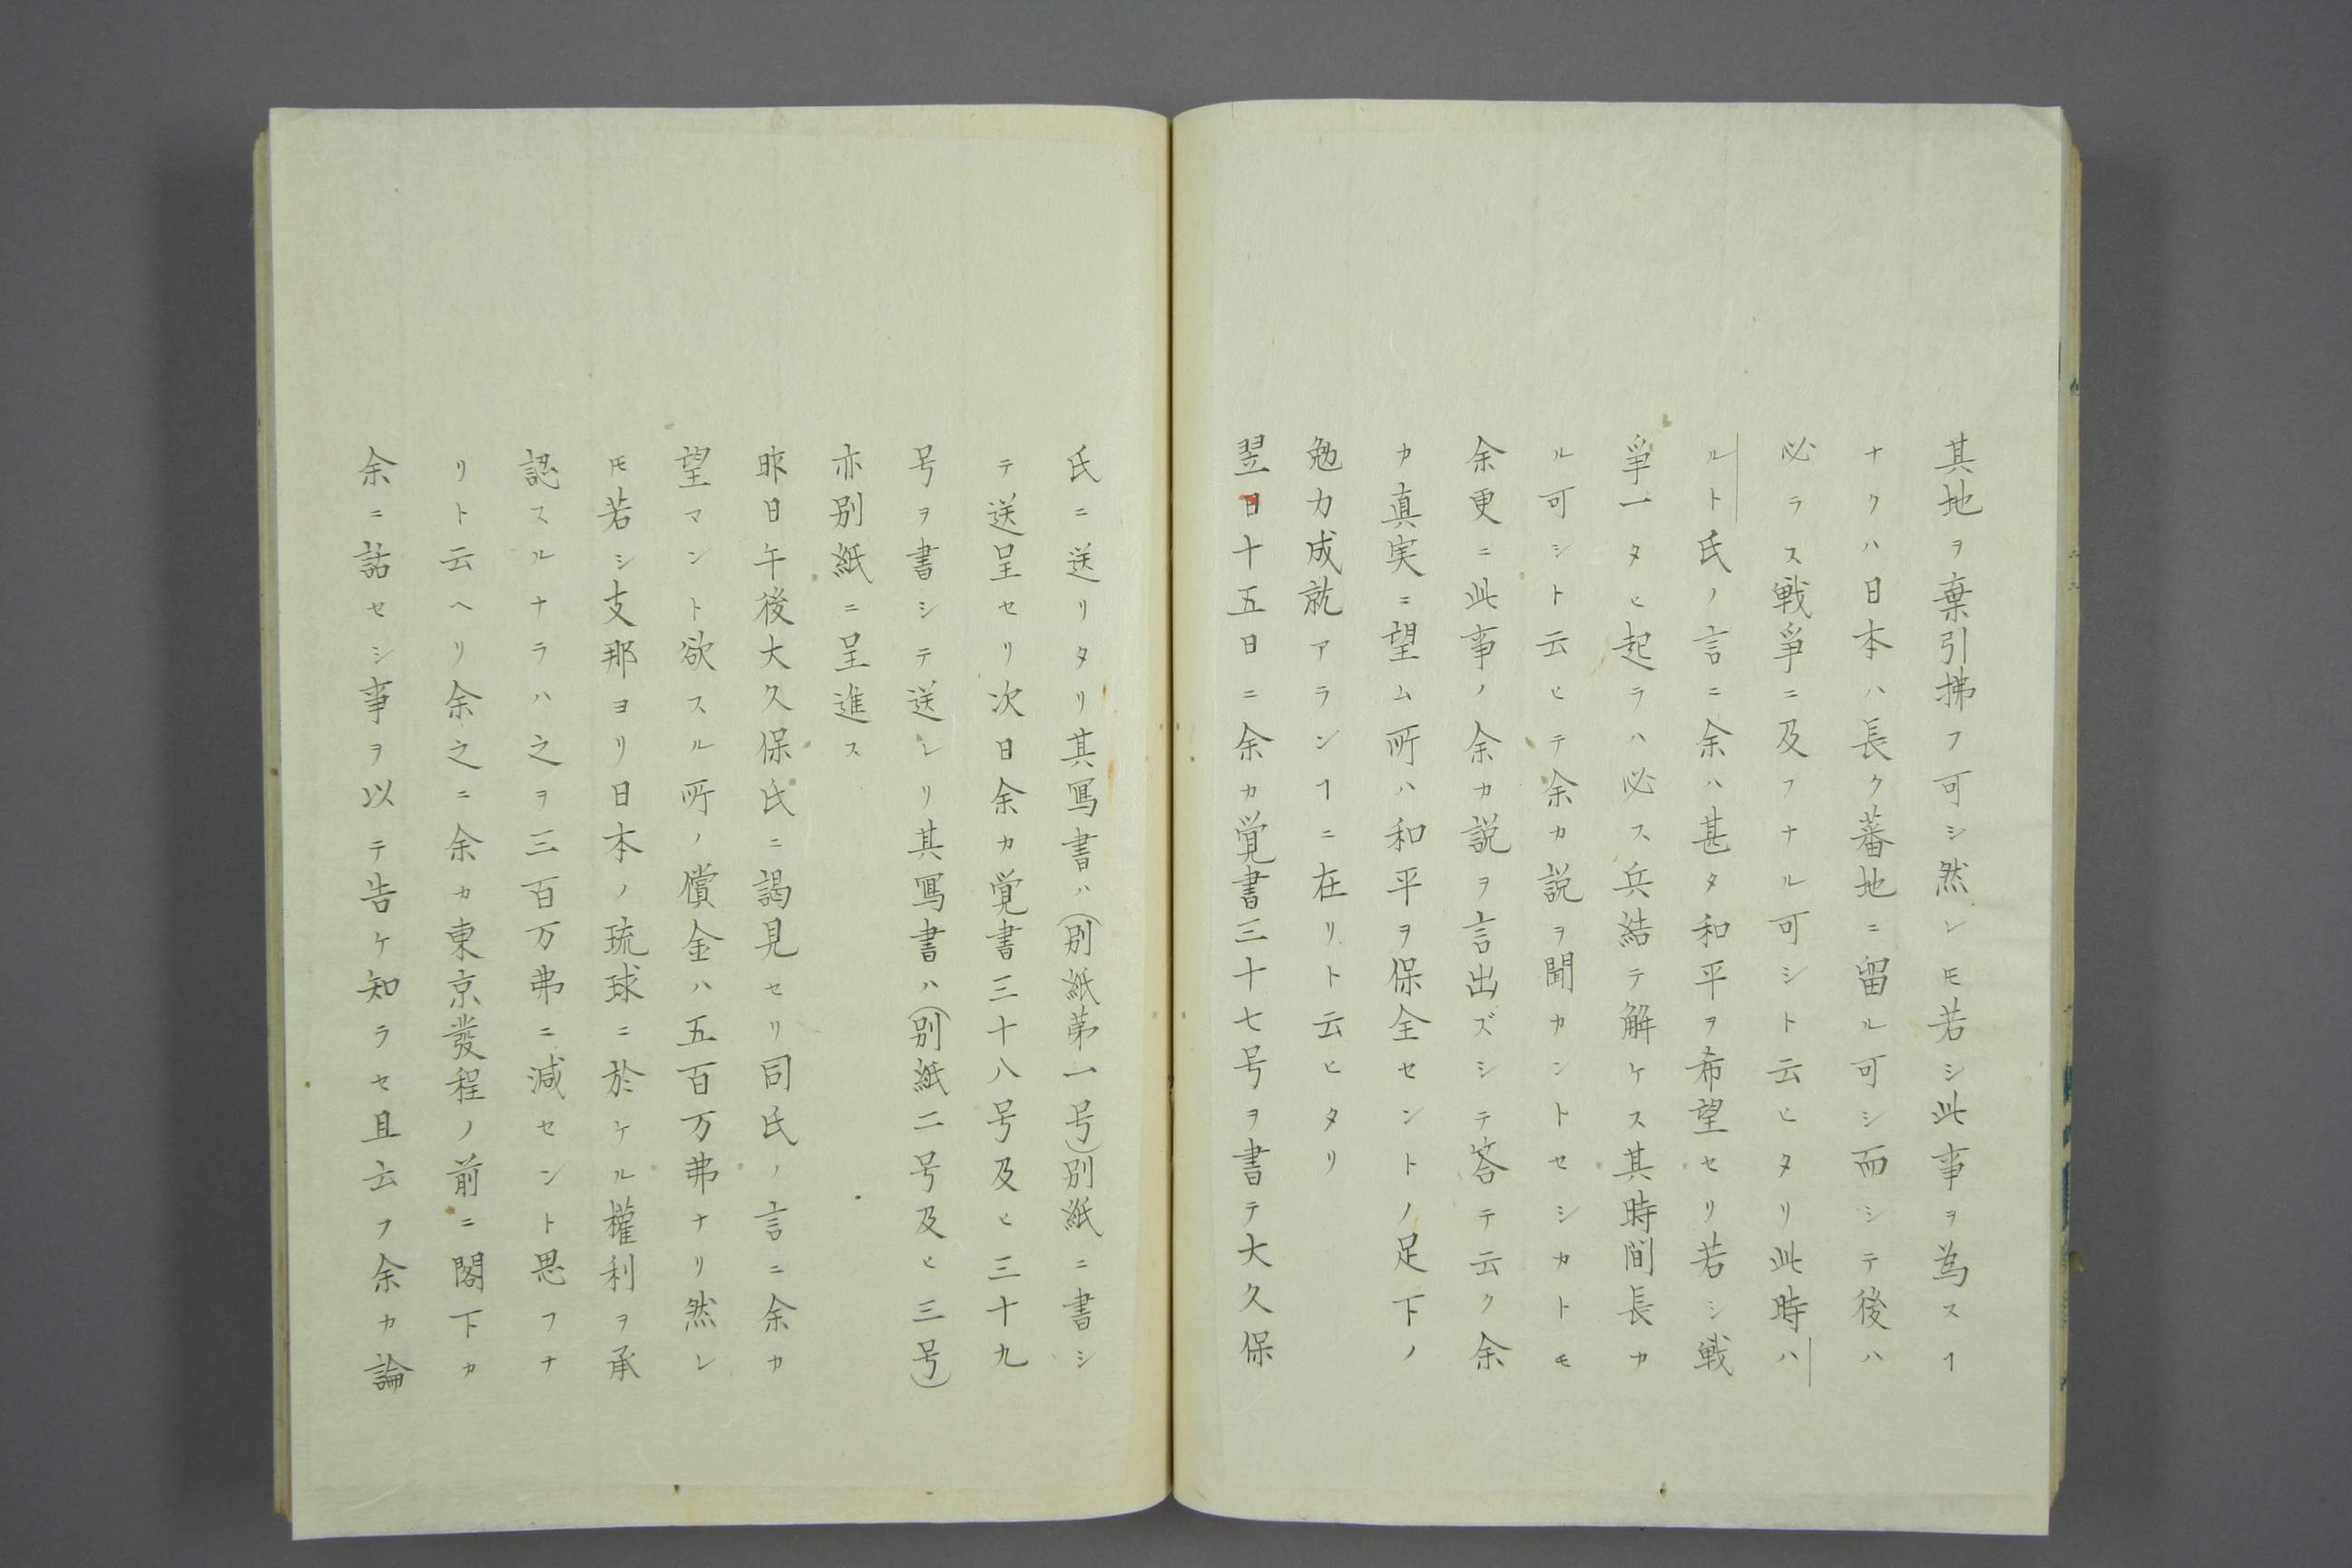 其地ヲ棄引拂フ可シ然レ𪜈若シ此事ヲ為スヿ
ナクハ日本ハ長ク蕃地ニ留ル可シ而シテ後ハ
必ラス戦爭ニ及フナル可シト云ヒタリ此時ハ
ルト氏ノ言ニ余ハ甚タ和平ヲ希望セリ若シ戦
爭一タヒ起ラハ必ス兵結テ解ケス其時間長カ
ル可シト云ヒテ余カ説ヲ聞カントセシカトモ
余更ニ此事ノ余カ説ヲ言出ズシテ答テ云ク余
カ真実ニ望ム所ハ和平ヲ保全セントノ足下ノ
勉力成就アランヿニ在リト云ヒタリ
翌日十五日ニ余カ覚書三十七号ヲ書テ大久保
氏ニ送リタリ其寫書ハ(別紙苐一号)別紙ニ書シ
テ送呈セリ次日余カ覚書三十八号及ヒ三十九
号ヲ書シテ送レリ其寫書ハ(別紙二号及ヒ三号)
亦別紙ニ呈進ス
昨日午後大久保氏ニ謁見セリ同氏ノ言ニ余カ
望マント欲スル所ノ償金ハ五百万弗ナリ然レ
𪜈若シ支那ヨリ日本ノ琉球ニ於ケル權利ヲ承
認スルナラハ之ヲ三百万弗ニ減セント思フナ
リト云ヘリ余之ニ余カ東京發程ノ前ニ閣下カ
余ニ話セシ事ヲ以テ告ケ知ラセ且云フ余カ論